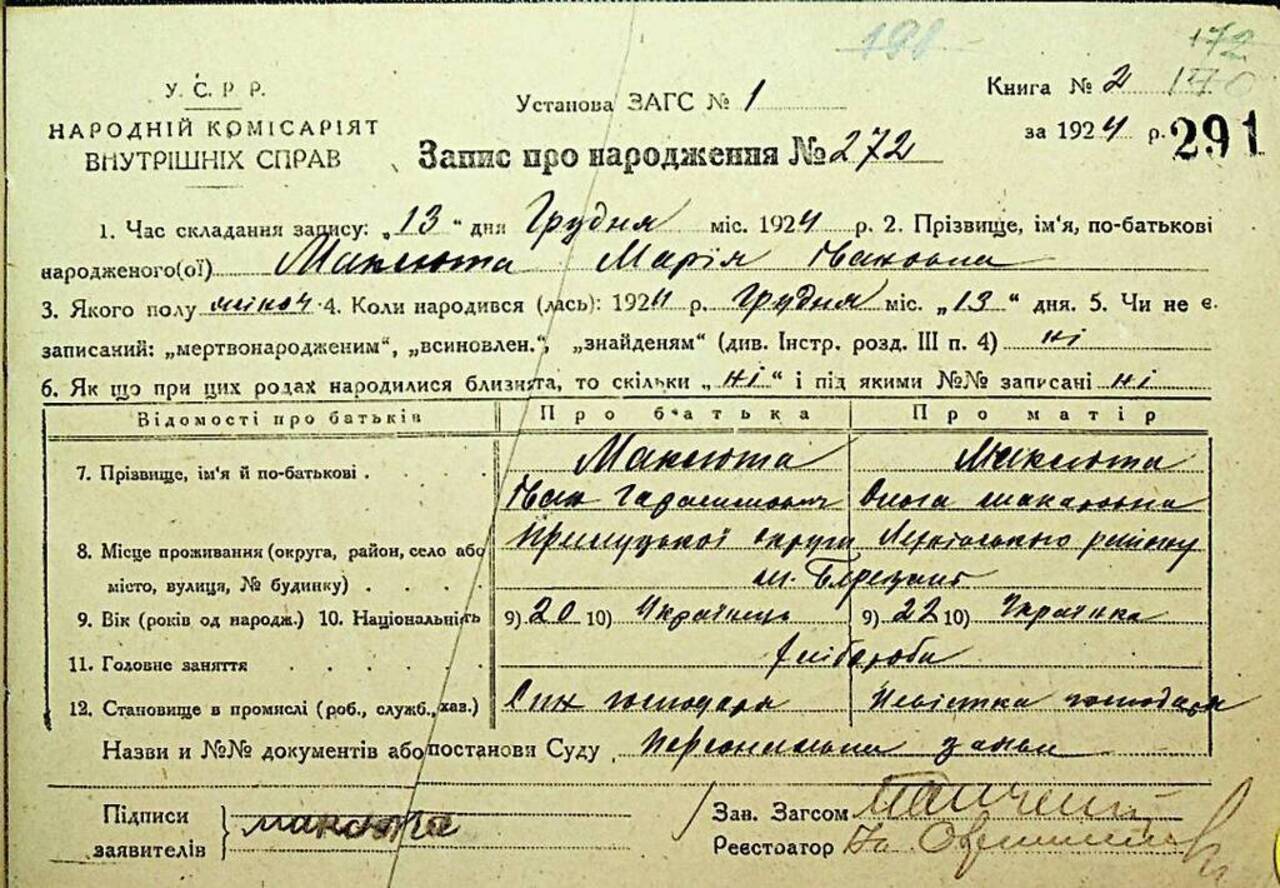 198 172
У. С. Р. Р. Установа ЗАГС № 1 Книга № 2 170
НАРОДНІЙ КОМІСАРІЯТ за 1924 р. 291
ВНУТРІШНІХ СПРАВ Запис про народження № 272
1. Час складання запису: „13“ дня Грудня міс. 1924 р. 2. Прізвище, ім'я, по-батькові
народженого(ої) Максюта Марія Івановна
3. Якого полу жіноч 4. Коли народився (лась): 1924 р. Грудня міс. „13“ дня. 5. Чи не є
записаний: „мертвонародженим“, „всиновлен.“, „знайденям“ (див. Інстр. розд. III п. 4) ні
6. Як що при цих родах народилися близнята, то скільки „ні“ і під якими №№ записані ні
Відомості про батьків Про батька Про матір
7. Прізвище, ім'я й по-батькові Максюта Максюта
Іван Гарасимович Ольга Макаровна
8. Місце проживання (округа, район, село або Прилуцької округи району
місто, вулиця, № будинку) м. Березань
9. Вік (років од народж.) 10. Національність 9) 20 10) Українець 9) 22 10) Українка
11. Головне заняття Хлібороби
12. Становище в промислі (роб., служб., хаз.) Син господаря Невістка господаря
Назви и №№ документів або постанови Суду
Підписи Максюта Зав. Загсом
заявителів Реєстратор